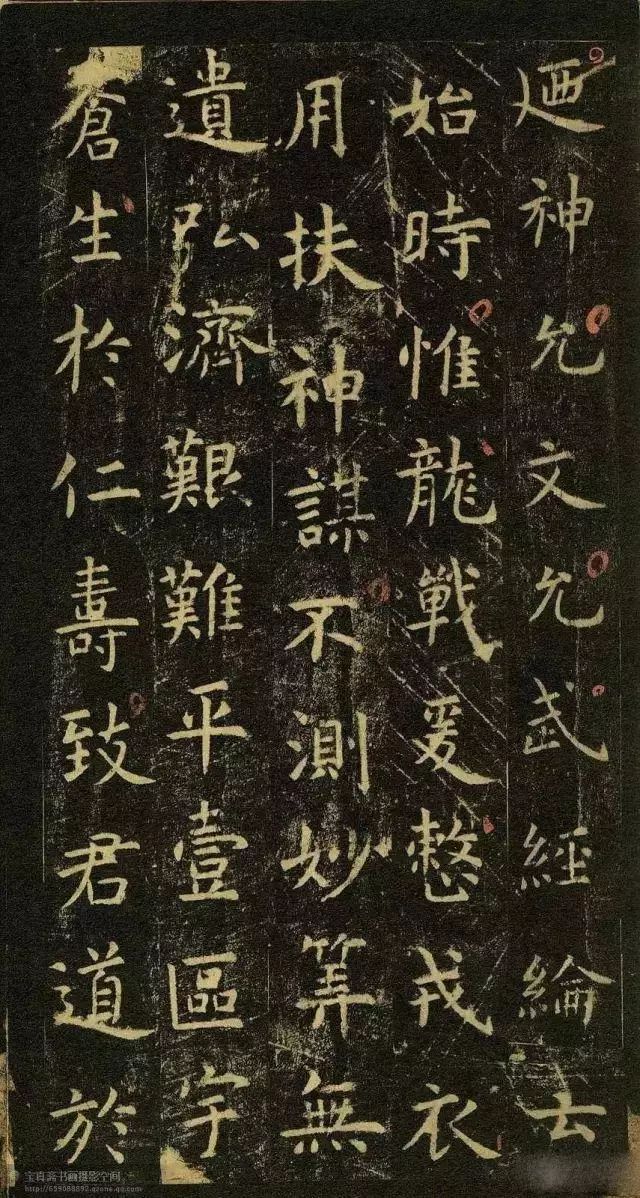 迺神允文允武經綸云
始時惟龍戰爰愸戎衣
用扶神謀不測妙筭無
遺弘濟艱難平壹區宇
倉生於仁壽致君道於
宝真斋书画摄影空间
http://659088892.qzone.qq.com